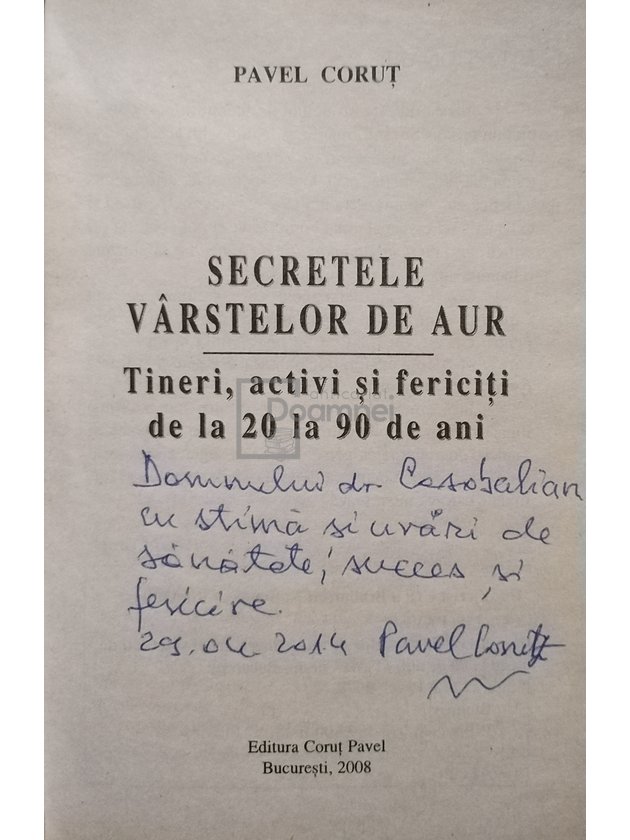 PAVEL CORUȚ
SECRETELE
VÂRSTELOR DE AUR
Tineri, activi și fericiți
de la 20 la 90 de ani
anticariat
Doamnei
Domnului dr
cu stimă si urări de
sănătate, succes și
fericire.
29. 2014 Pavel Coruț
Editura Coruț Pavel
București, 2008